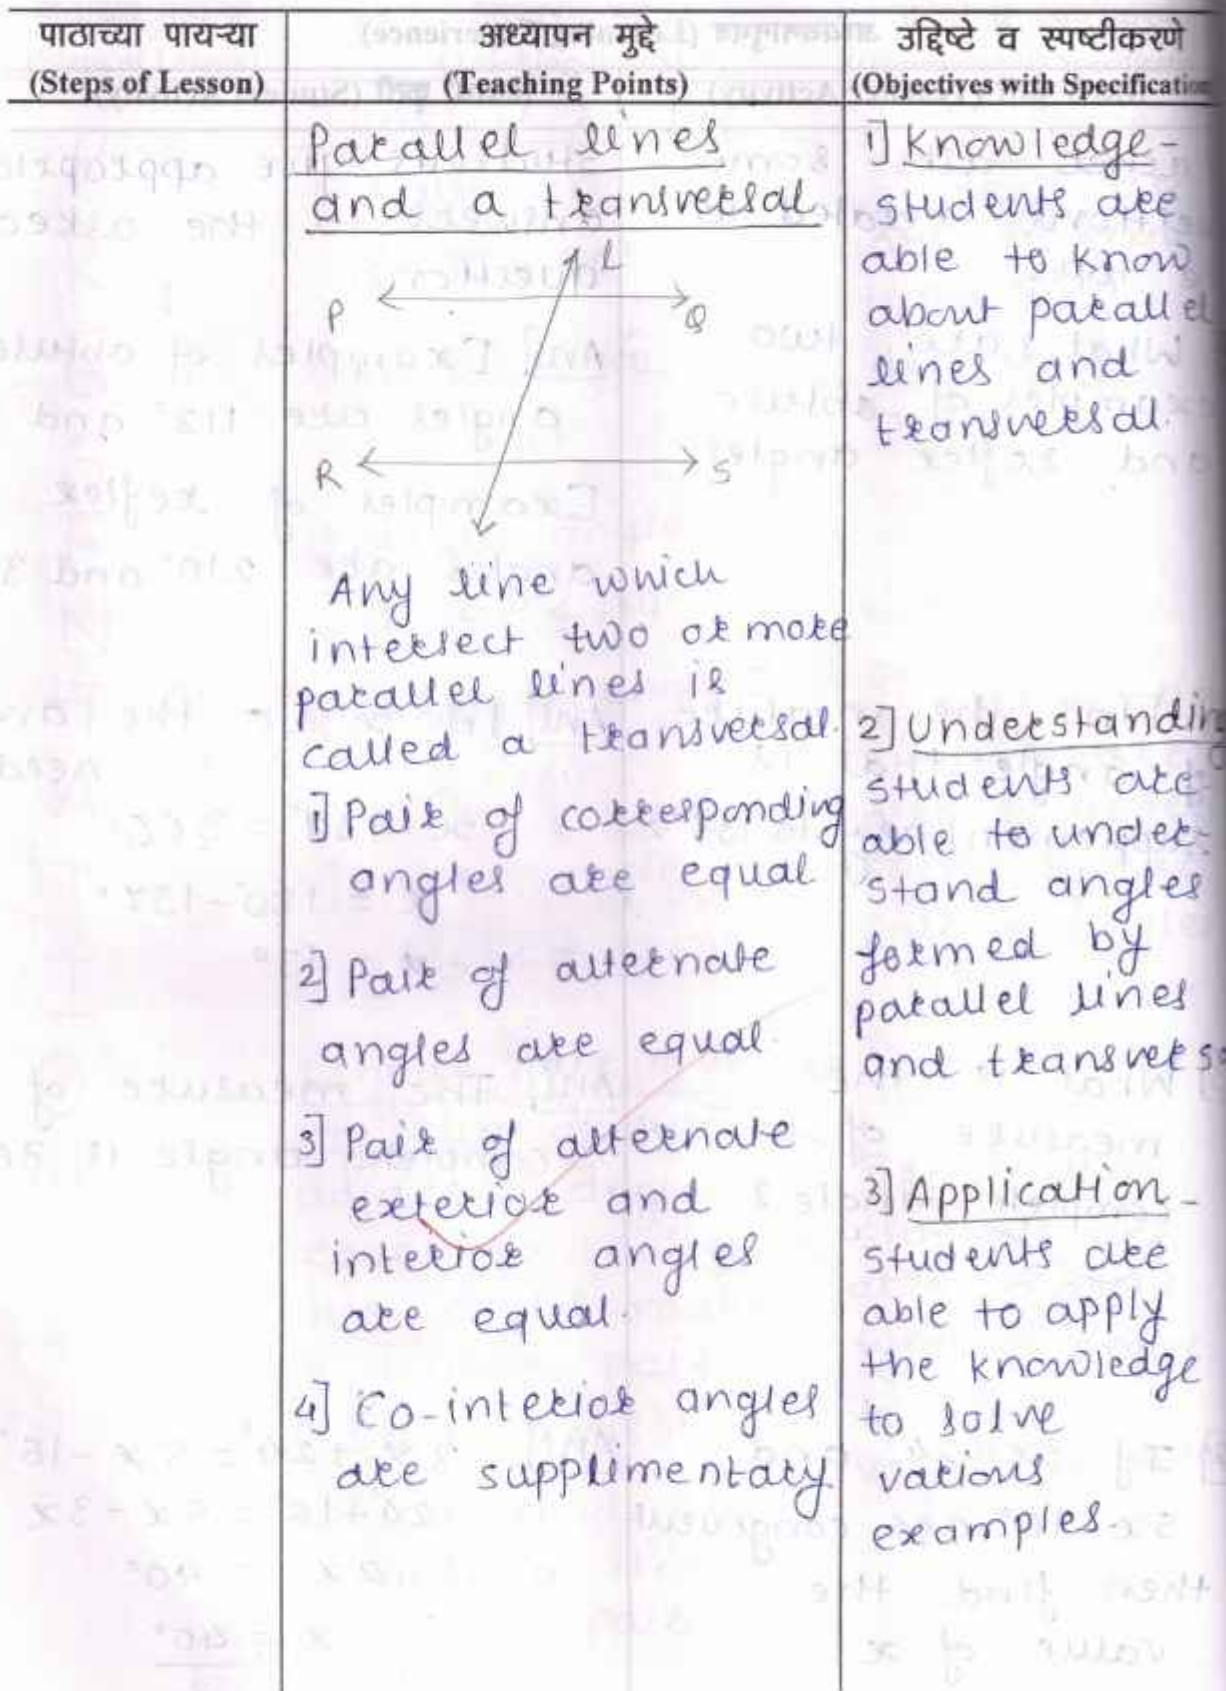 पाठाच्या पायऱ्या
(Steps of Lesson)
अध्यापन मुद्दे
(Teaching Points)
उद्दिष्टे व स्पष्टीकरणे
(Objectives with Specification
Parallel lines
and a transversal
L
P
Q
R
S
Any line which
intersect two or more
parallel lines is
called a transversal.
1] Pair of corresponding
angles are equal
2] Pair of alternate
angles are equal.
3] Pair of alternate
exterior and
interior angles
are equal.
4] Co-interior angles
are supplimentary
1] Knowledge -
students are
able to know
about parallel
lines and
transversal.
2] Understandin
students are
able to under-
stand angles
formed by
parallel lines
and transvers
3] Application -
students are
able to apply
the knowledge
to solve
various
examples.